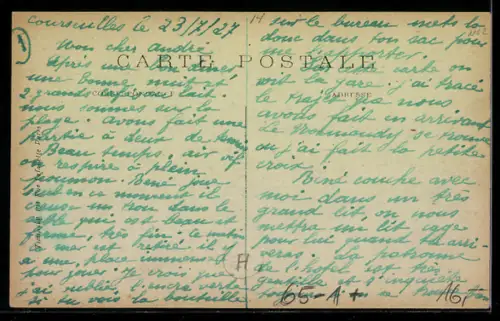 Courseulles le 23/7/27
1
Mon cher André
Après une bonne
une bonne nuit et
2 grands de lait
nous sommes sur la
plage. avons fait une
partie à deux de tennis
Beau temps, air vif
on respire à plein
poumon. Bené joue
en ce moment il
creuse un trou dans le
sable qui est beau et
ferme, très fin. le matin
la mer est retirée il y
a une place immense
pour jouer. Je crois que
j'ai oublié l'encre verte
si tu vois la bouteille
CARTE POSTALE
CORRESPONDANCE
ADRESSE
sur le bureau mets la
donc dans ton sac pour
me l'apporter.
cette carte on
voit la gare. j'ai tracé
le trajet que nous
avons fait en arrivant
Le Normandy se trouve
où j'ai fait la petite
croix.
Bené couche avec
moi dans un très
grand lit, on nous
mettra un lit cage
pour lui quand tu arri-
veras. La patronne
de l'hôtel est très
gentille et s'inquiète
H
65-1+
16F